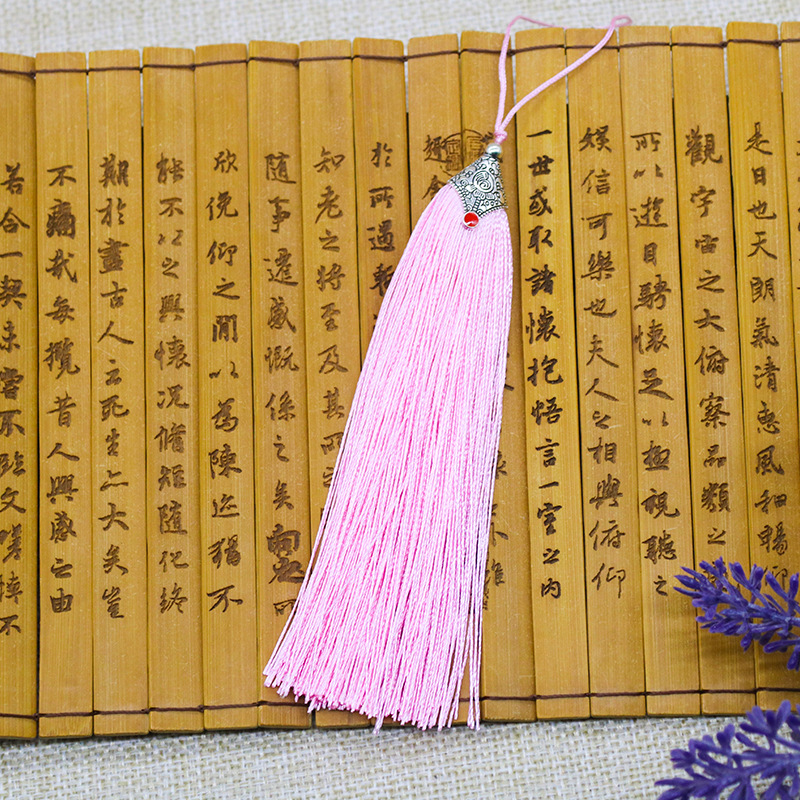 是日也天朗氣清惠風和暢仰
觀宇宙之大俯察品類之
所以遊目騁懷足以極視聽之
娛信可樂也夫人之相與俯仰
一世或取諸懷抱悟言一室之內
雖
趣舍
於所遇暫
知老之將至及其所
隨事遷感慨係之矣向之
欣俛仰之間以為陳迹猶不
能不以之興懷況脩短隨化終
期於盡古人云死生亦大矣豈
不痛哉每攬昔人興感之由
若合一契未嘗不臨文嗟悼不